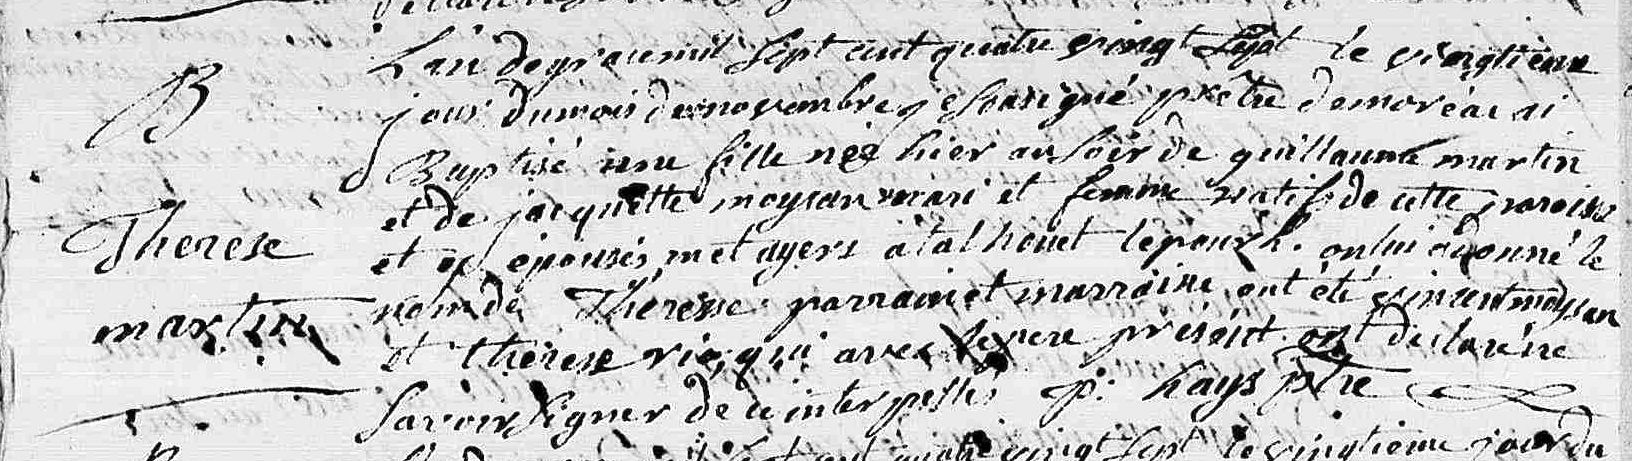 B
Therese
martin
L'an de grace mil sept cent quatre vingt sept le vingtieme
jour du mois de novembre je sousigné prêtre de moréac ai
Baptisé une fille née hier au soir de guillaume martin
et de jacquette moysan mari et femme natifs de cette paroisse
et y épousés, metayers à talhouet lepourh. on lui a donné le
nom de Thérèse. parrain et marraine ont été vincent moysan
et therese rio, qui avec le pere présent ont declaré ne
savoir signer de ce interpellés p. hays ptre
sept cent quatre vingt sept le vingtieme jour du